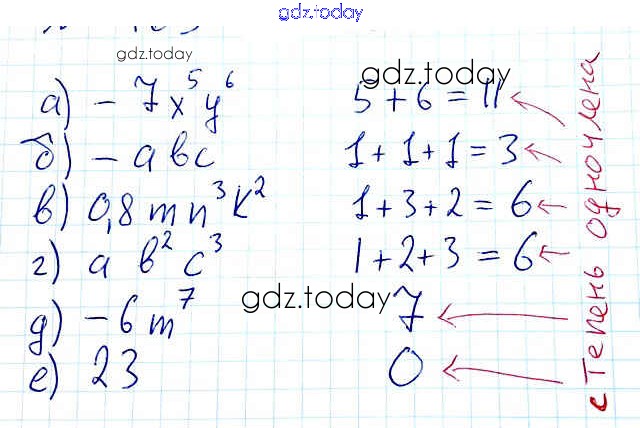 gdz.today
gdz.today
gdz.today
а) - 7x⁵y⁶ 5 + 6 = 11
б) - abc 1 + 1 + 1 = 3
в) 0,8mn³k² 1 + 3 + 2 = 6
г) a b² c³ 1 + 2 + 3 = 6
gdz.today
д) - 6m⁷ 7
е) 23 0
степень одночлена